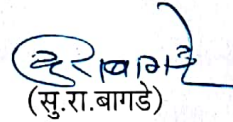 (सु.रा.बागडे)